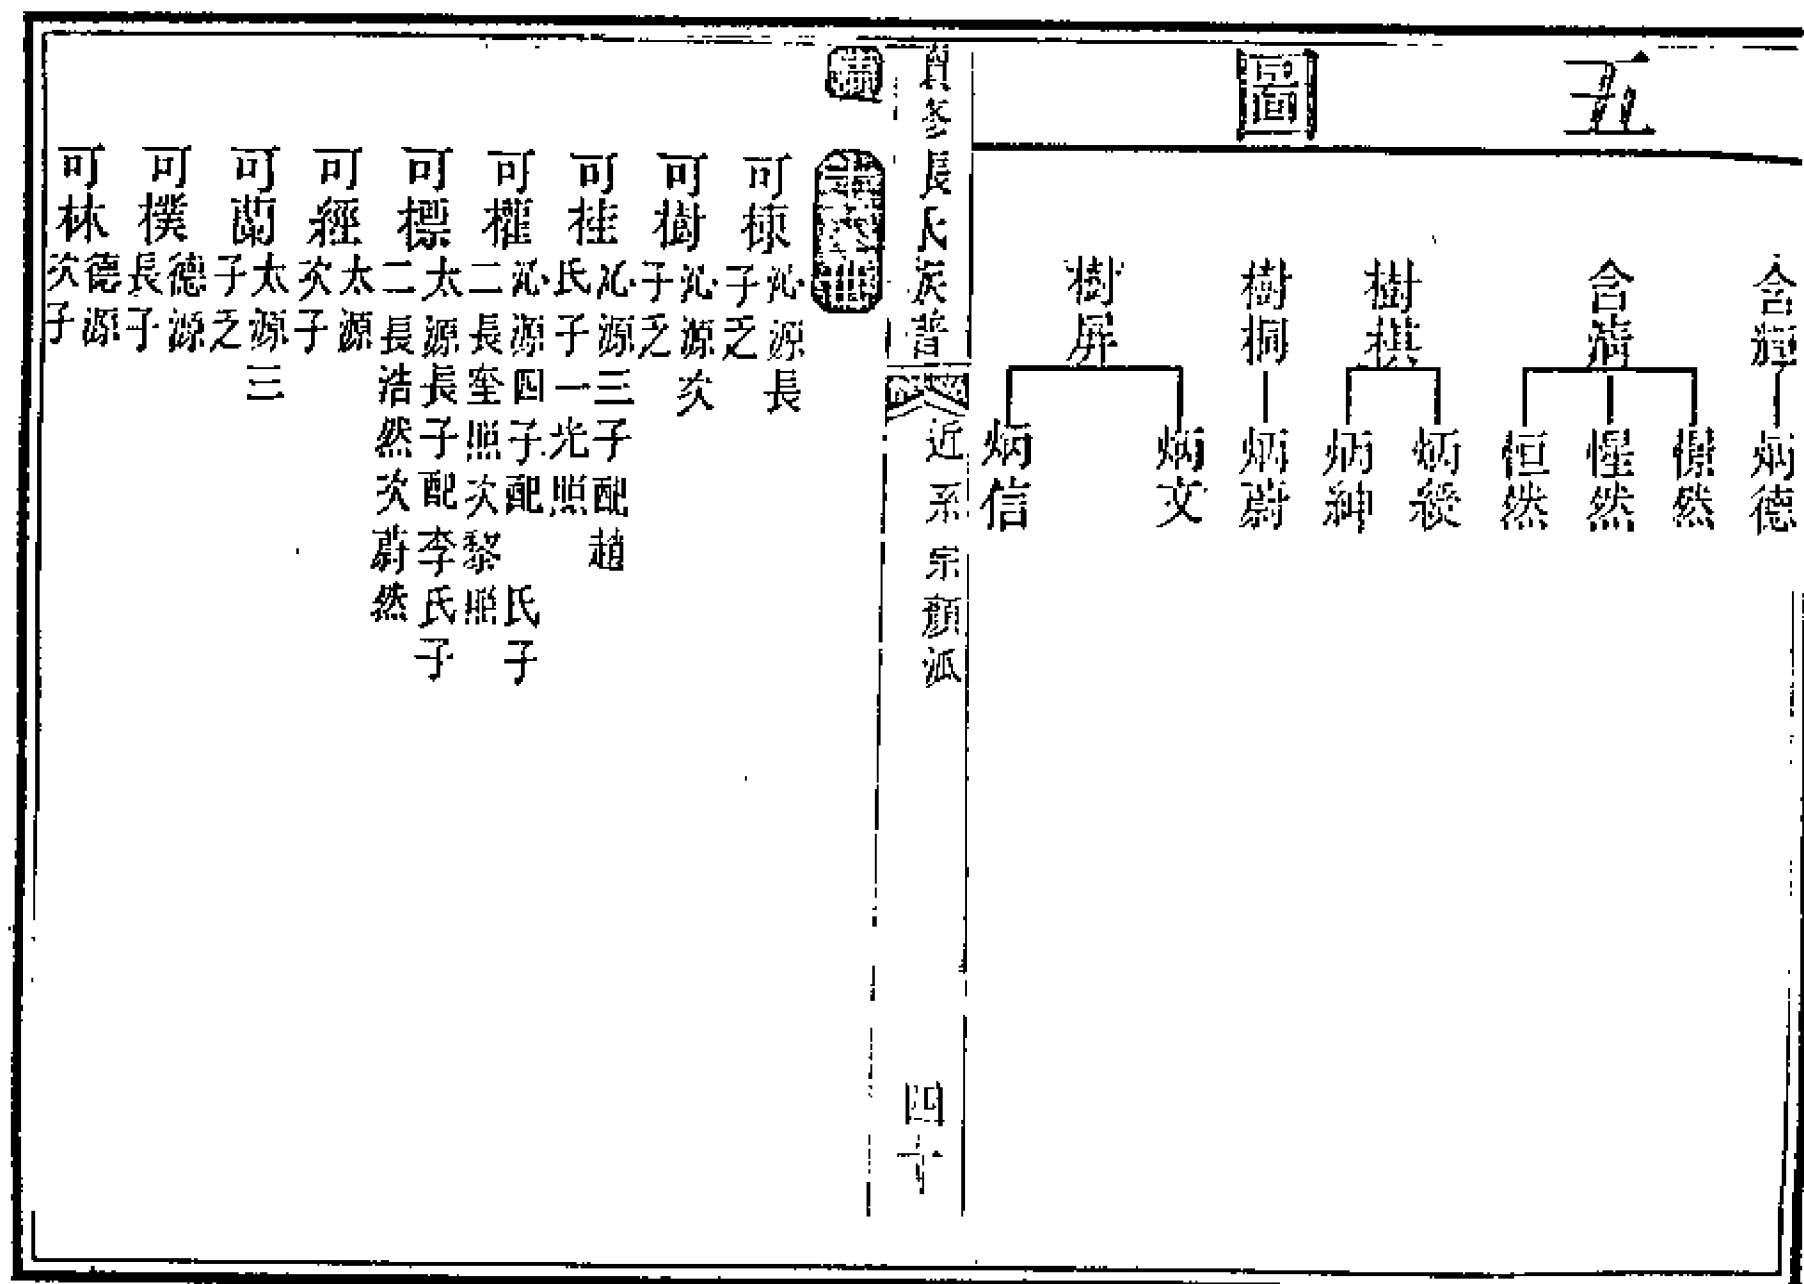 五圖
含
炳德
含清
㥧然
惺然
恒然
樹棋
炳綬
炳紳
樹桐
炳蔚
樹屏
炳文
炳信
長氏族普
近系宗顏派
四十
可棟 沁源長子乏
可樹 沁源次子乏
可桂 沁源三子配趙氏子一光照
可權 沁源四子配 氏子二長奎照次黎照
可標 太源長子配李氏子二長浩然次蔚然
可經 太源次子
可蘭 太源三子乏
可樸 德源長子
可林 德源次子